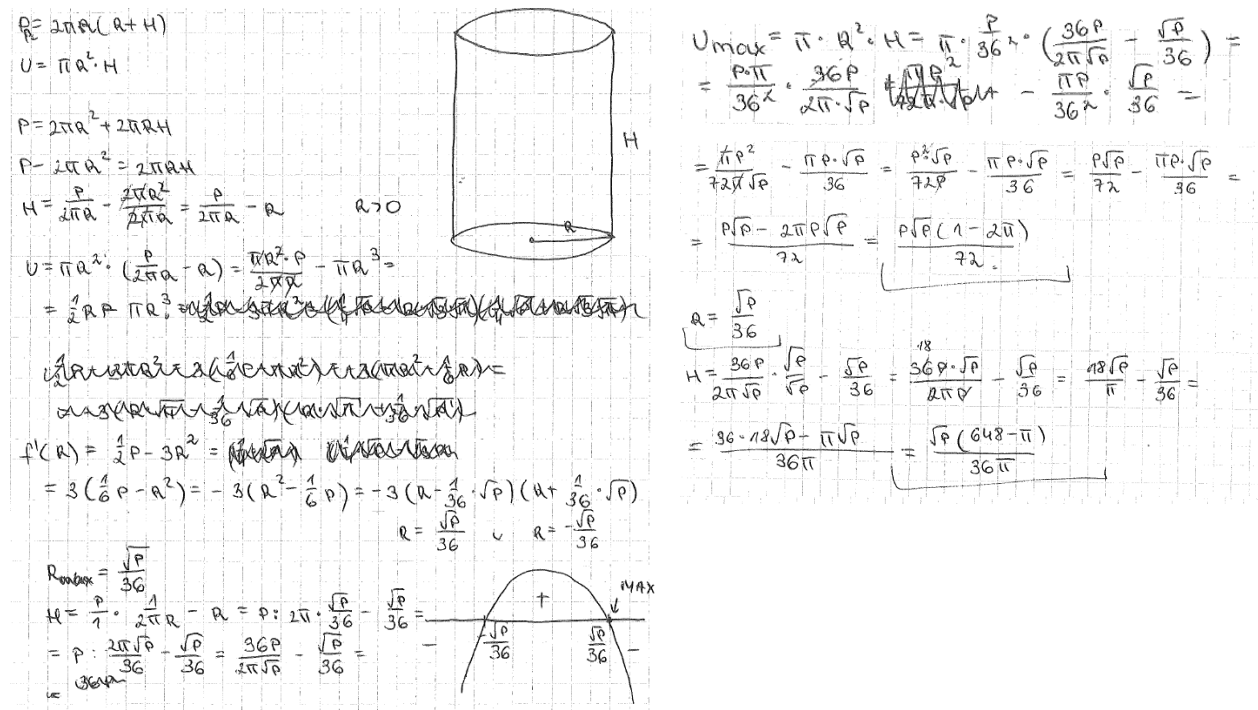 P = 2πR(R+H)
V = πR²·H
P = 2πR² + 2πRH
P - 2πR² = 2πRH
H = P/2πR - 2πR²/2πR = P/2πR - R   R>0
V = πR²·(P/2πR - R) = πR²·P/2πR - πR³ =
= ½RP - πR³
f'(R) = ½P - 3R² =
= 3(1/6 P - R²) = -3(R² - 1/6 P) = -3(R - 1/36·√P)(R + 1/36·√P)
R = √P/36 ∪ R = -√P/36
Rmax = √P/36
H = P/1 · 1/2πR - R = P : 2π·√P/36 - √P/36 =
= P : 2π√P/36 - √P/36 = 36P/2π√P - √P/36 =
H
R
MAX
+
- -
-√P/36 √P/36
Vmax = π·R²·H = π·P/36²·(36P/2π√P - √P/36) =
= P·π/36² · 36P/2π·√P - πP/36² · √P/36 =
= πP²/72π√P - πP·√P/36 = P²·√P/72P - πP·√P/36 = P√P/72 - πP·√P/36 =
= P√P - 2πP√P/72 = P√P(1-2π)/72
R = √P/36
H = 36P/2π√P · √P/√P - √P/36 = 18 36P·√P/2πP - √P/36 = 18√P/π - √P/36 =
= 36·18√P - π√P/36π = √P(648-π)/36π